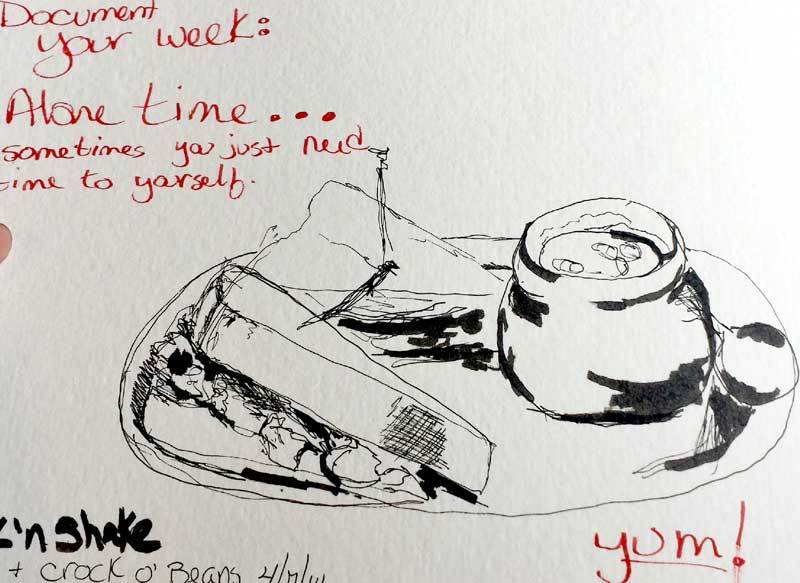 Document
your week:
Alone time...
sometimes you just need
time to yourself.
'n Shake
+ CROCK O' Beans
yum!